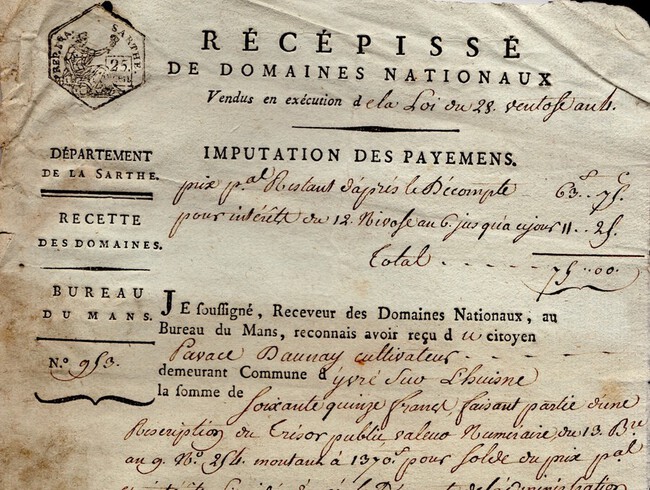 RÉP. FRA.
SARTHE.
25.
CENT.
RÉCÉPISSÉ
DE DOMAINES NATIONAUX
Vendus en exécution de la Loi du 28. ventose an 4.
DÉPARTEMENT
DE LA SARTHE.
RECETTE
DES DOMAINES.
BUREAU
DU MANS.
N.º 953.
IMPUTATION DES PAYEMENS.
prix p.al Restant d'après le Décompte 63.. 75.
pour intérêts du 12. Nivose an 6. jusqu'a ce jour 11.. 25.
Total 75.. 00.
JE soussigné, Receveur des Domaines Nationaux, au
Bureau du Mans, reconnais avoir reçu du citoyen
Pavace Daunay cultivateur
demeurant Commune d'yvré Sur L'huisne
la somme de
Soixante quinze francs faisant partie d'une
Rescription du Trésor public valeur Numéraire du 13. B.re
an 9. N.º 254. montant à 1370.f pour solde du prix p.al